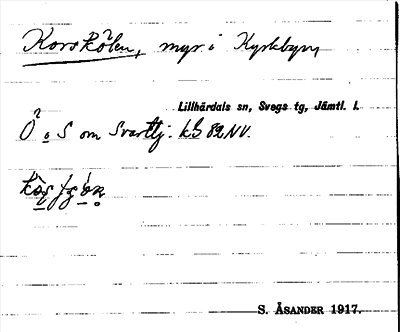 Korskölen, myr i Kyrkbyn,
Lillhärdals sn, Svegs tg, Jämtl. l.
Ö o S om Svarttj. kb 82 NV.
S. ÅSANDER 1917.